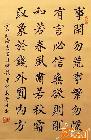 事閒勿荒事繁勿慌
有言必信無欲則剛
和若春風肅若秋霜
取象於錢外圓內方